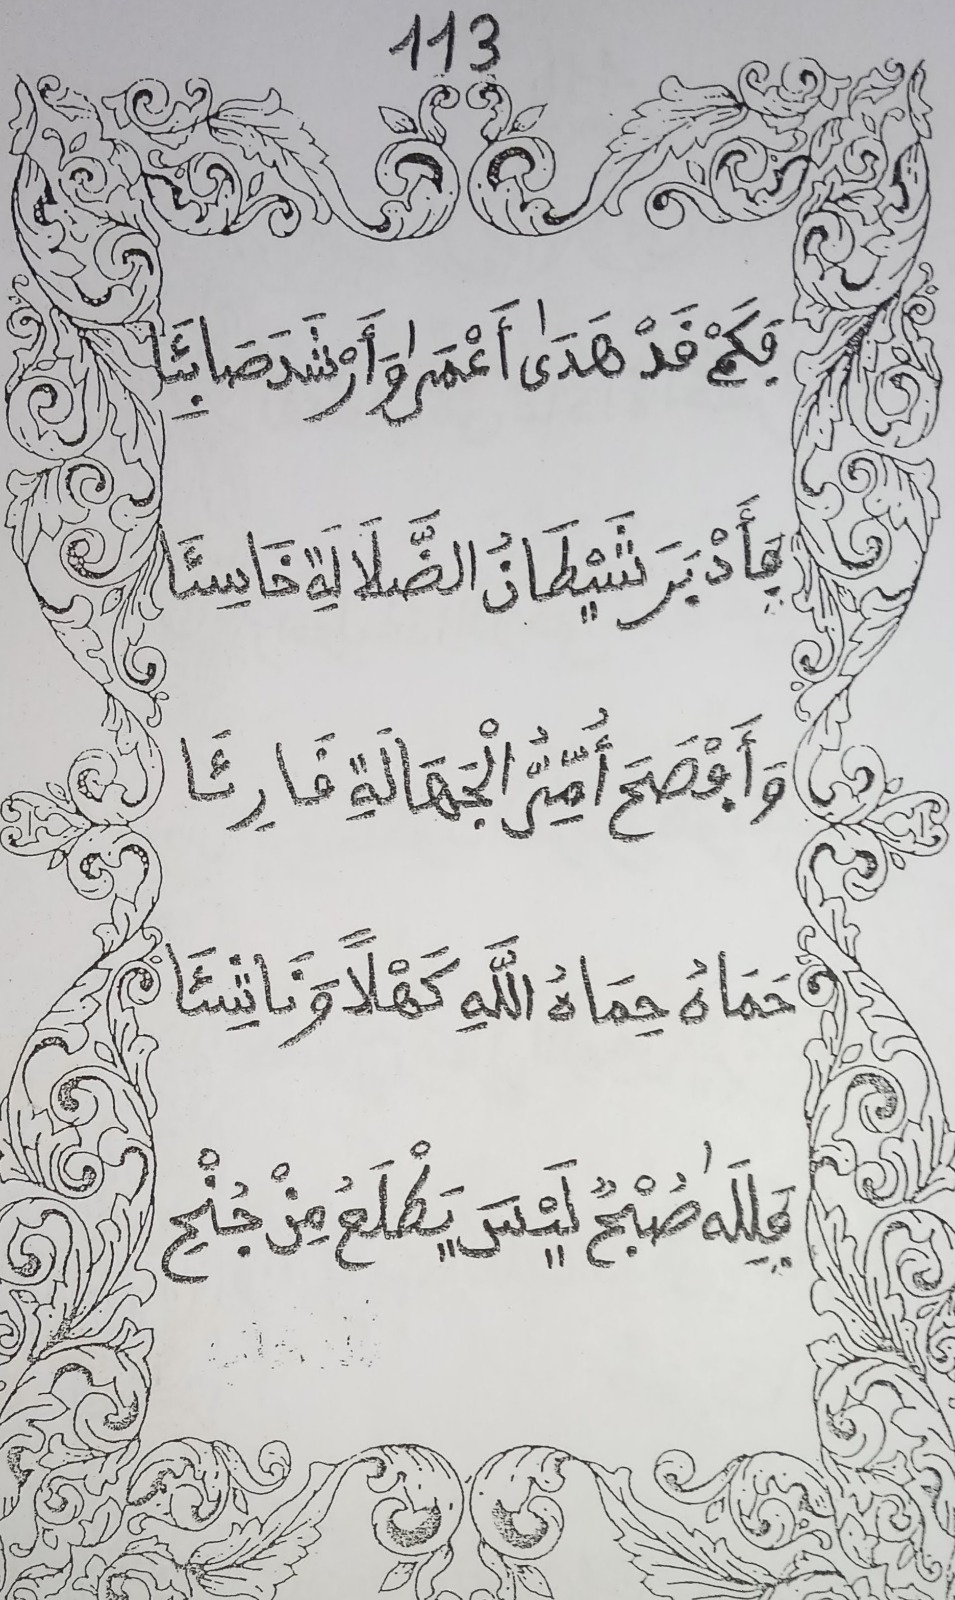 113
فَكَمْ قَدْ هَدَىٰ أَعْمَىٰ وَأَرْشَدَ صَابِئَا
فَأَدْبَرَ شَيْطَانُ الضَّلَالَةِ خَاسِئَا
وَأَفْصَحَ أُمِّىُّ الْجَهَالَةِ قَارِئَا
حَمَاهُ حِمَاهُ اللَّهِ كَهْلًا وَنَاشِئَا
فَلِلَّهِ صُبْحٌ لَيْسَ يَطْلَعُ مِنْ جُنْحِ